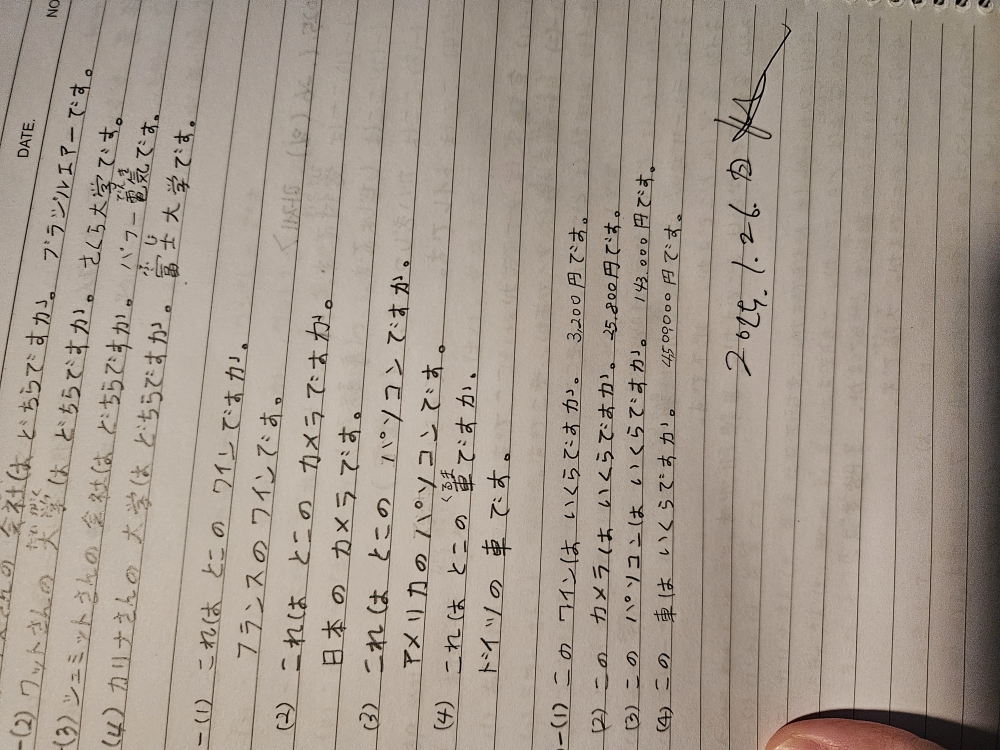 NO
DATE.
会社は どちらですか。 ブラジルエアーです。
-(2) ワットさんの 大学は どちらですか。 さくら大学です。
だいがく
-(3) シュミットさんの 会社は どちらですか。 パワー電気です。
でんき
(4) カリナさんの 大学は どちらですか。 富士大学です。
ふじ
-(1) これは どこの ワインですか。
フランスのワインです。
(2) これは どこの カメラですか。
日本の カメラです。
(3) これは どこの パソコンですか。
アメリカのパソコンです。
(4) これは どこの 車ですか。
くるま
ドイツの 車です。
-(1) この ワインは いくらですか。 3,200円です。
(2) この カメラは いくらですか。 25.800円です。
(3) この パソコンは いくらですか。 143.000円です。
(4) この 車は いくらですか。 4,500,000円です。
2025. 1. 26. 日